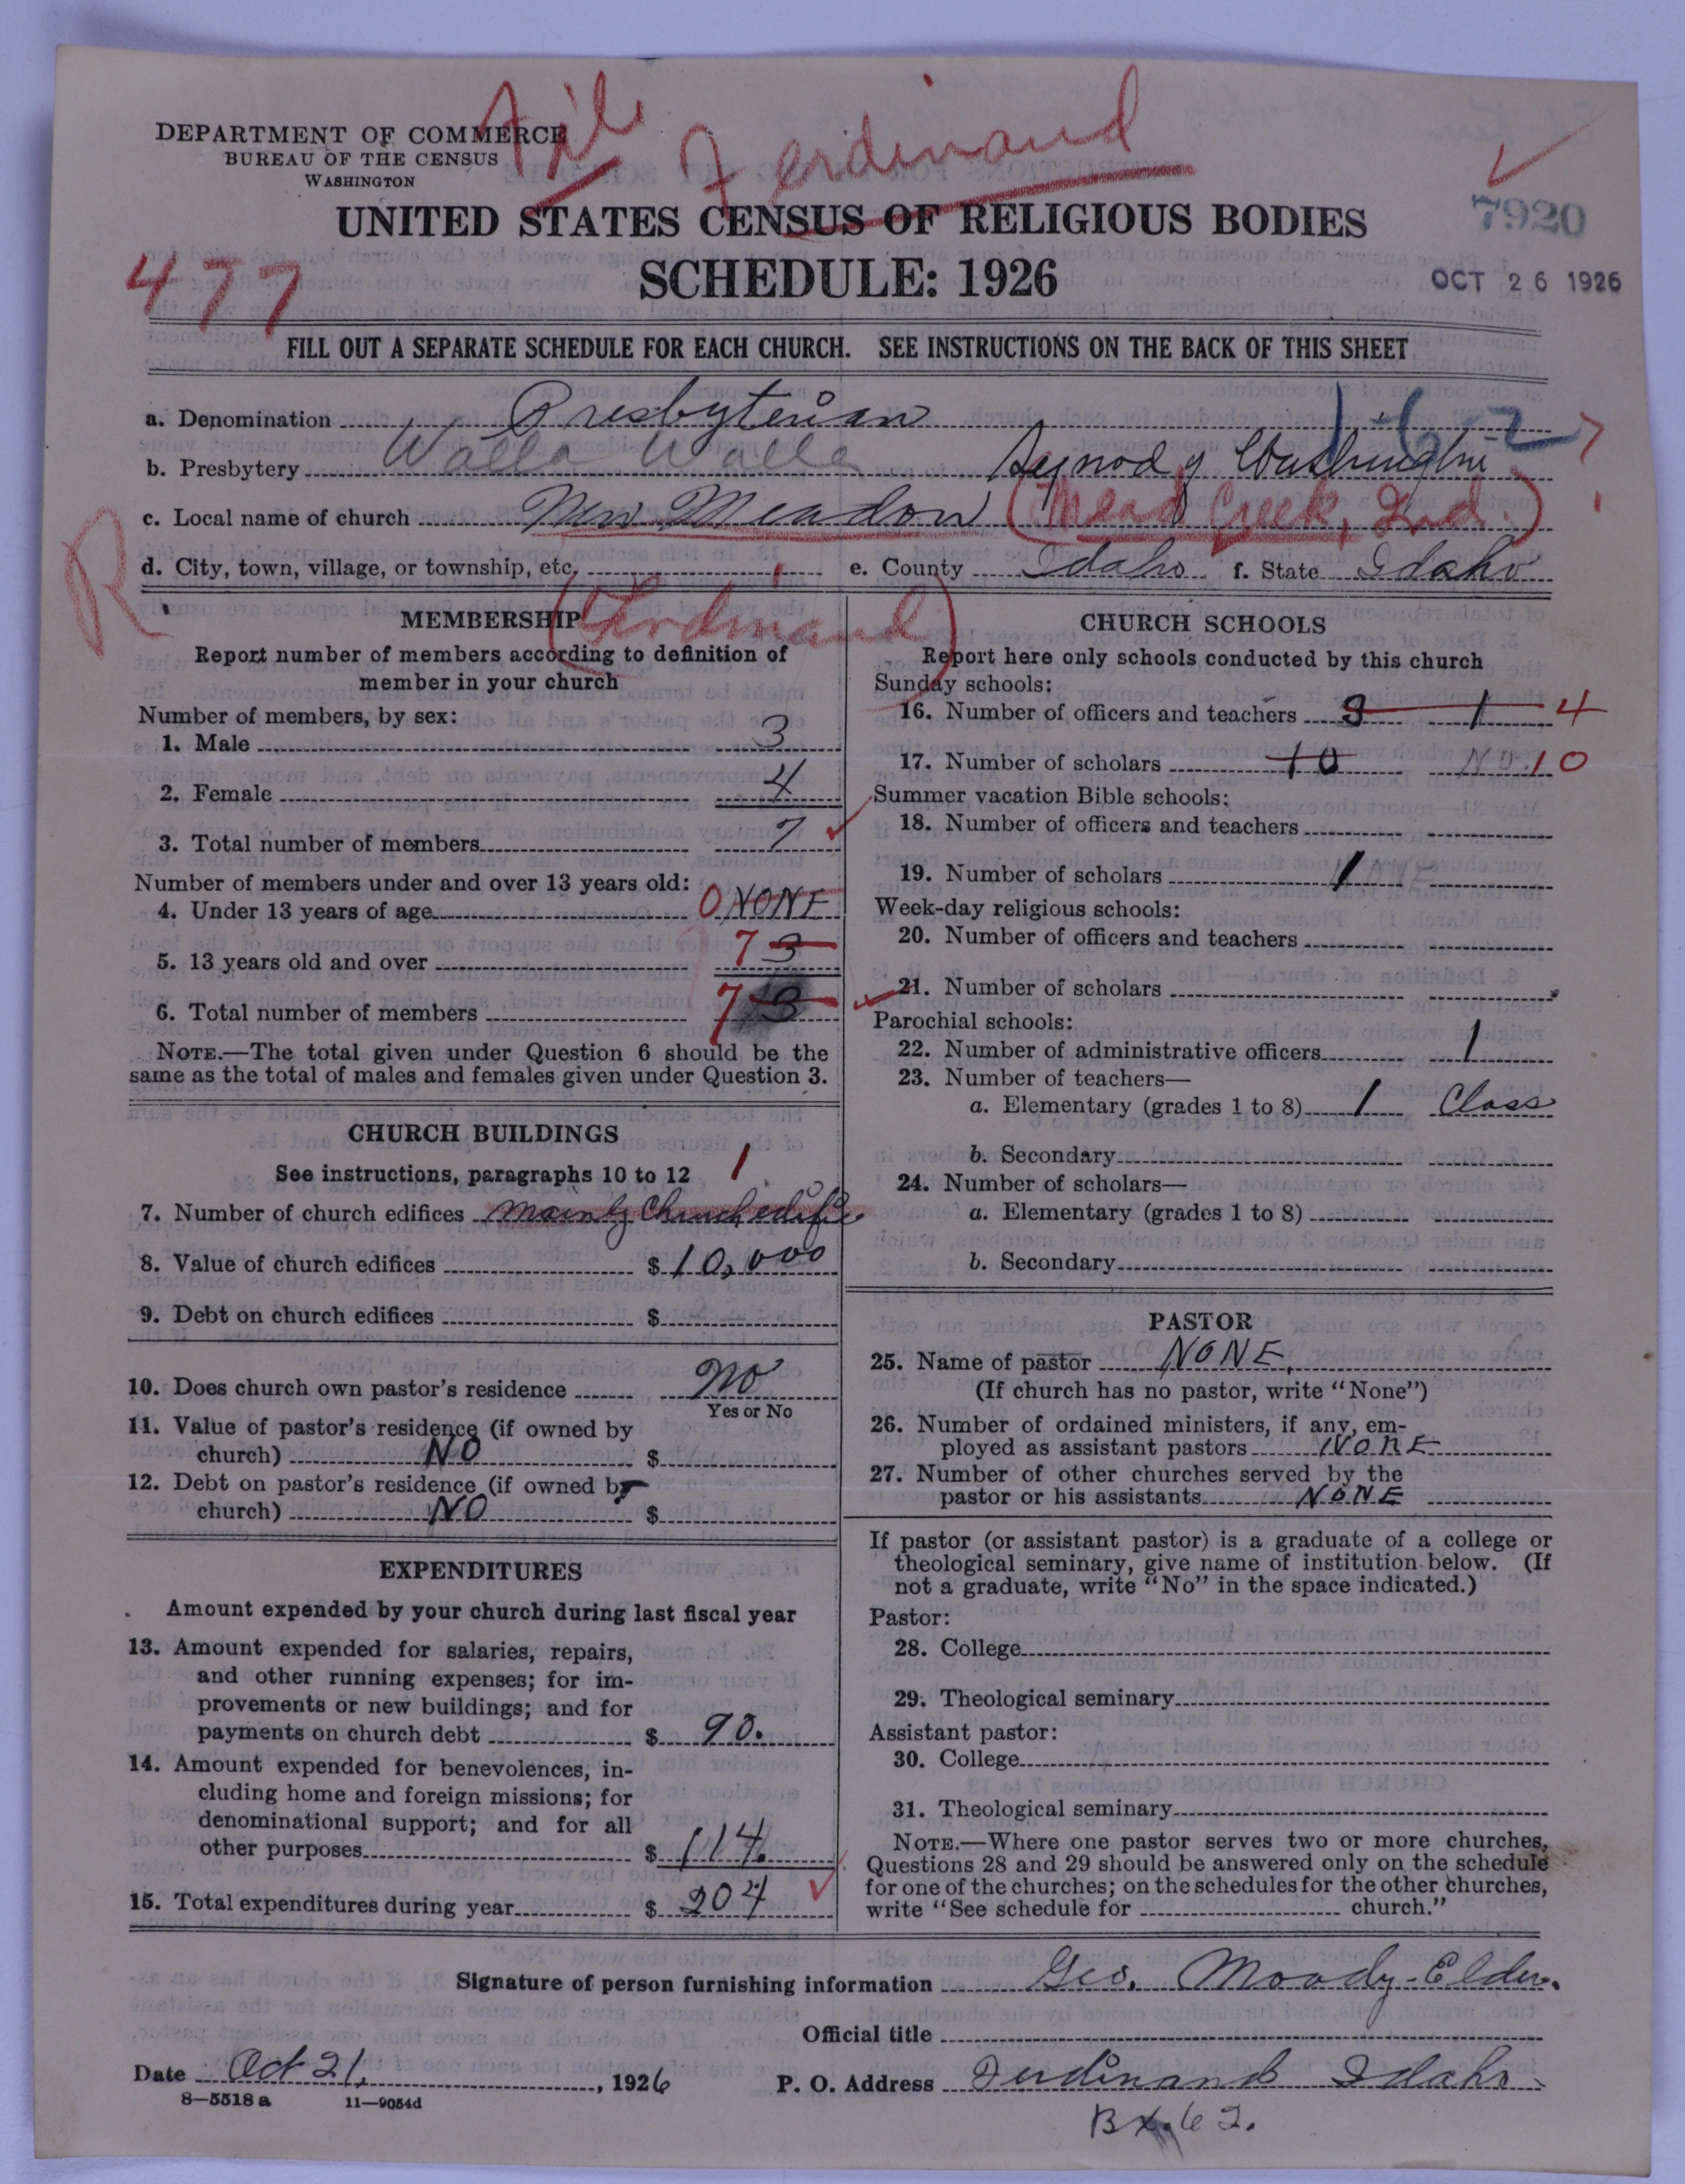 File Ferdinand
DEPARTMENT OF COMMERCE
BUREAU OF THE CENSUS
WASHINGTON
7920
UNITED STATES CENSUS OF RELIGIOUS BODIES
477
SCHEDULE: 1926
OCT 26 1926
FILL OUT A SEPARATE SCHEDULE FOR EACH CHURCH. SEE INSTRUCTIONS ON THE BACK OF THIS SHEET
a. Denomination Presbyterian 1-6-2
b. Presbytery Walla Walla Synod of Washington
c. Local name of church New Meadow (Mead Creek, Ind.)
d. City, town, village, or township, etc. (Ferdinand) e. County Idaho f. State Idaho
R
MEMBERSHIP
Report number of members according to definition of
member in your church
Number of members, by sex:
1. Male 3
2. Female 4
3. Total number of members 7
Number of members under and over 13 years old:
4. Under 13 years of age 0 NONE
5. 13 years old and over 7 3
6. Total number of members 7 3
NOTE.—The total given under Question 6 should be the
same as the total of males and females given under Question 3.
CHURCH BUILDINGS
See instructions, paragraphs 10 to 12 1
7. Number of church edifices mainly Church edifice
8. Value of church edifices $ 10,000
9. Debt on church edifices $
10. Does church own pastor's residence no
Yes or No
11. Value of pastor's residence (if owned by
church) NO $
12. Debt on pastor's residence (if owned by
church) NO $
EXPENDITURES
Amount expended by your church during last fiscal year
13. Amount expended for salaries, repairs,
and other running expenses; for im-
provements or new buildings; and for
payments on church debt $ 90.
14. Amount expended for benevolences, in-
cluding home and foreign missions; for
denominational support; and for all
other purposes $ 114.
15. Total expenditures during year $ 204
CHURCH SCHOOLS
Report here only schools conducted by this church
Sunday schools:
16. Number of officers and teachers 3 1 4
17. Number of scholars 10 No. 10
Summer vacation Bible schools:
18. Number of officers and teachers
19. Number of scholars 1
Week-day religious schools:
20. Number of officers and teachers
21. Number of scholars
Parochial schools:
22. Number of administrative officers 1
23. Number of teachers—
a. Elementary (grades 1 to 8) 1 Class
b. Secondary
24. Number of scholars—
a. Elementary (grades 1 to 8)
b. Secondary
PASTOR
25. Name of pastor NONE.
(If church has no pastor, write "None")
26. Number of ordained ministers, if any, em-
ployed as assistant pastors NONE
27. Number of other churches served by the
pastor or his assistants NONE
If pastor (or assistant pastor) is a graduate of a college or
theological seminary, give name of institution below. (If
not a graduate, write "No" in the space indicated.)
Pastor:
28. College
29. Theological seminary
Assistant pastor:
30. College
31. Theological seminary
NOTE.—Where one pastor serves two or more churches,
Questions 28 and 29 should be answered only on the schedule
for one of the churches; on the schedules for the other churches,
write "See schedule for church."
Signature of person furnishing information Geo. Moody-Elder.
Official title
Date Oct 21, 1926 P. O. Address Ferdinand Idaho
8—5518 a 11—9054d
Bx. 62.